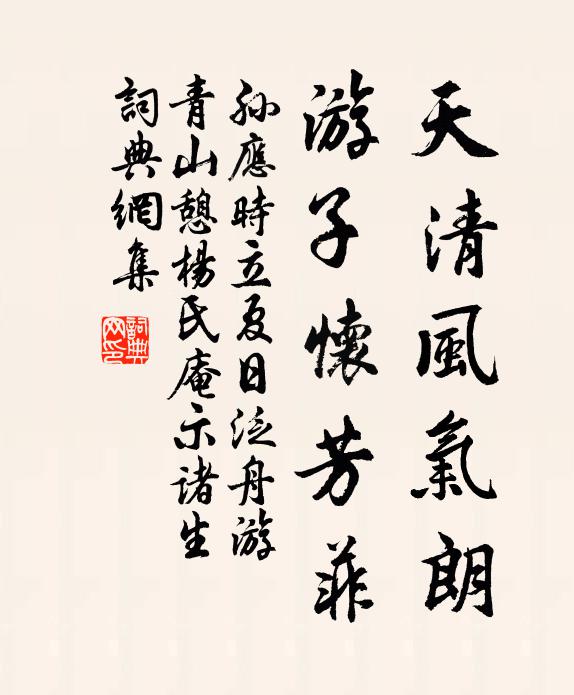 天清風氣朗
游子懷芳菲
孙應時立夏日泛舟游
青山憩楊氏庵示諸生
詞典網集
詞典网印